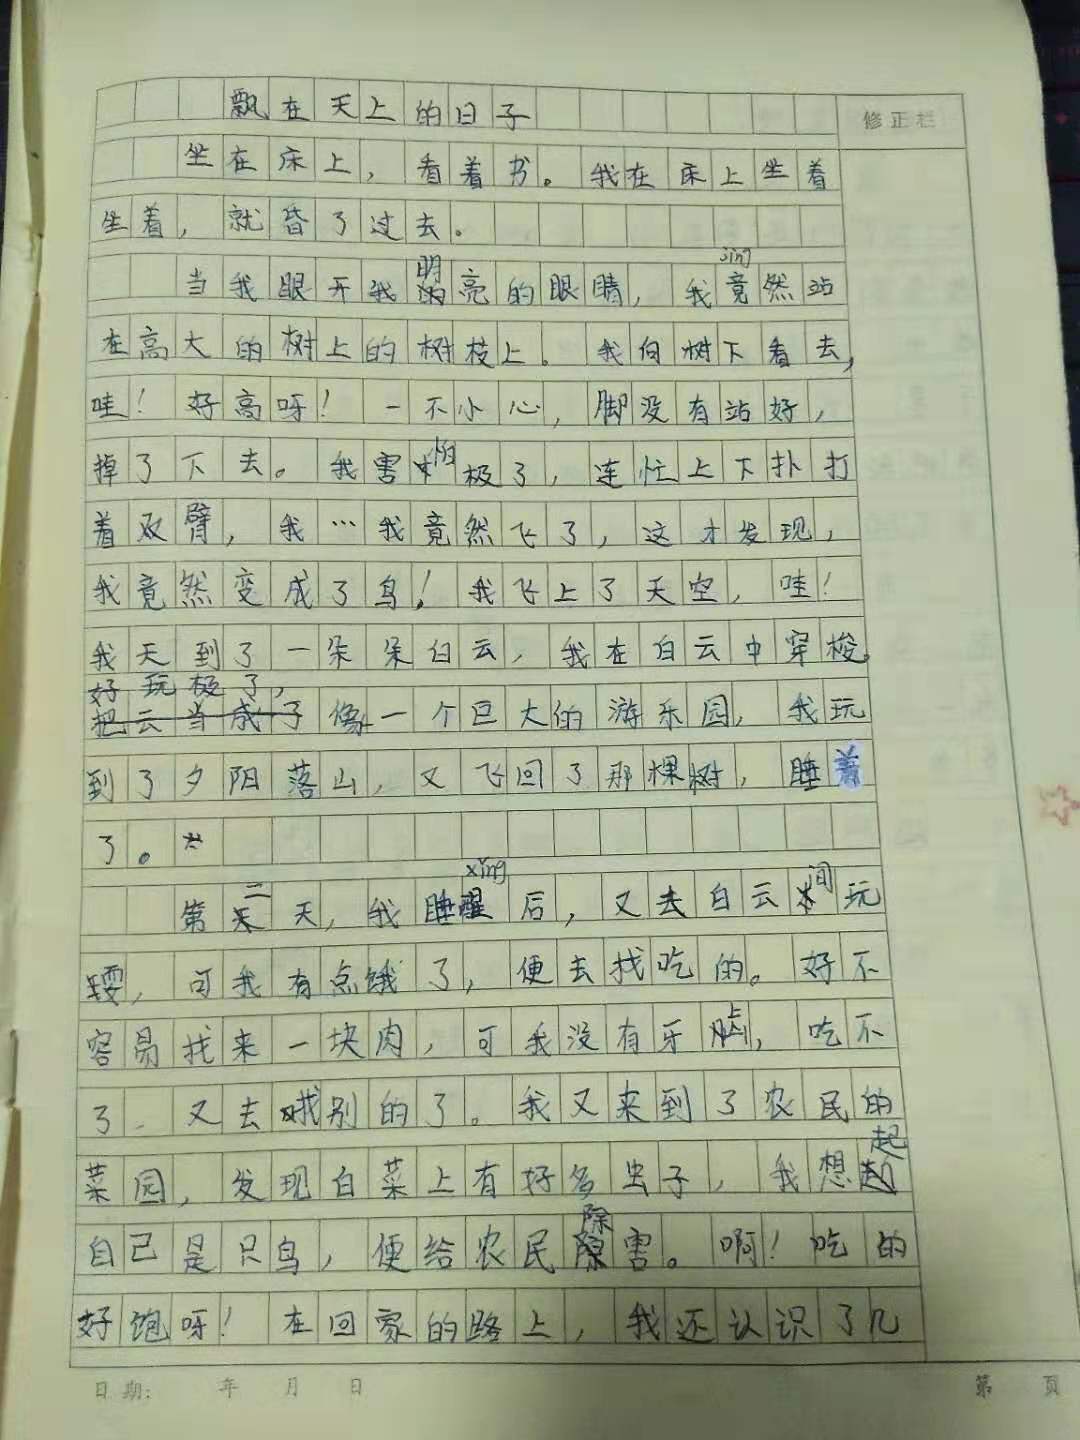 飘在天上的日子
修正栏
坐在床上，看着书。我在床上坐着
坐着，就昏了过去。
当我眼开我明亮的眼睛，我竟然站
jing
在高大的树上的树枝上。我向树下看去，
哇！好高呀！一不小心，脚没有站好，
掉了下去。我害怕极了，连忙上下扑打
着双臂，我…我竟然飞了，这才发现，
我竟然变成了鸟！我飞上了天空，哇！
我天到了一朵朵白云，我在白云中穿梭，
好玩极了，
把云当成了像一个巨大的游乐园，我玩
到了夕阳落山，又飞回了那棵树，睡着
了。
xing
第二天，我睡醒后，又去白云间玩
耍，可我有点饿了，便去找吃的。好不
容易找来一块肉，可我没有牙齿，吃不
了．又去找别的了。我又来到了农民的
菜园，发现白菜上有好多虫子，我想起
自己是只鸟，便给农民除害。啊！吃的
好饱呀！在回家的路上，我还认识了几
日期： 年 月 日
第 页